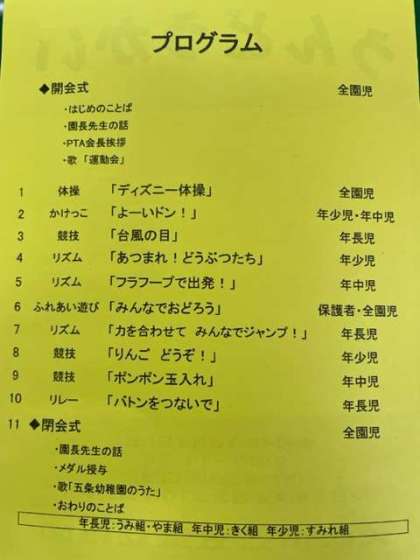 プログラム
◆開会式 全園児
・はじめのことば
・園長先生の話
・PTA会長挨拶
・歌 「運動会」
1 体操 「ディズニー体操」 全園児
2 かけっこ 「よーいドン!」 年少児・年中児
3 競技 「台風の目」 年長児
4 リズム 「あつまれ!どうぶつたち」 年少児
5 リズム 「フラフープで出発!」 年中児
6 ふれあい遊び 「みんなでおどろう」 保護者・全園児
7 リズム 「力を合わせて みんなでジャンプ!」 年長児
8 競技 「りんご どうぞ!」 年少児
9 競技 「ポンポン玉入れ」 年中児
10 リレー 「バトンをつないで」 年長児
11 ◆閉会式 全園児
・園長先生の話
・メダル授与
・歌「五条幼稚園のうた」
・おわりのことば
年長児:うみ組・やま組 年中児:きく組 年少児:すみれ組